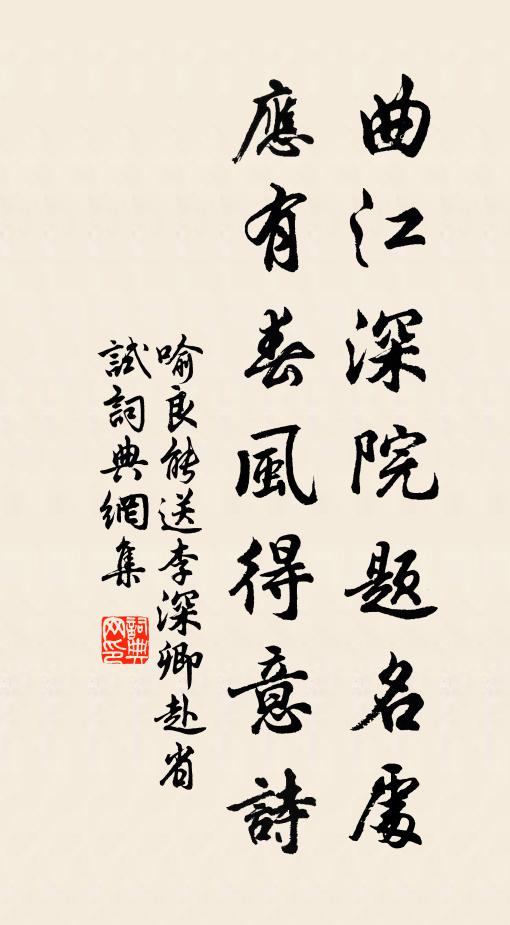 曲江深院题名處
應有春風得意詩
喻良能送李深卿赴省
試詞典網集
詞典网印